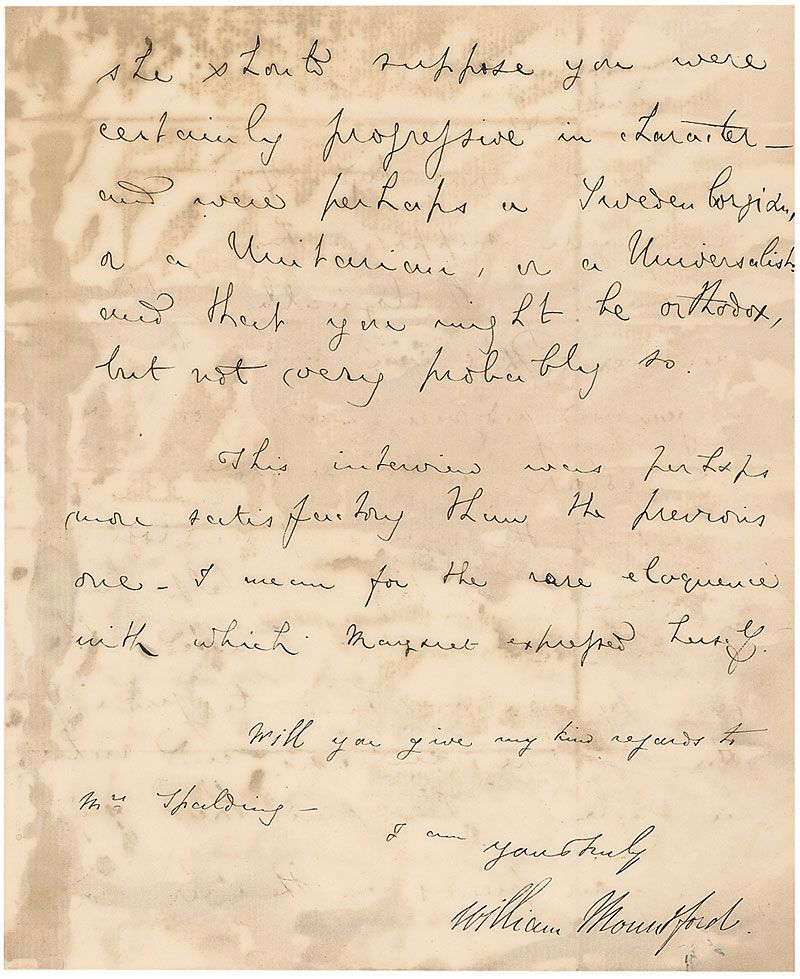 she should suppose you were
certainly progressive in character —
and were perhaps a Swedenborgian,
or a Unitarian, or a Universalist
and that you might be orthodox,
but not very probably so.
This interview was perhaps
more satisfactory than the previous
one — I mean for the rare eloquence
with which Margaret expressed herself.
Will you give my kind regards to
Mrs Spalding —
I am
yours truly
William Mountford.